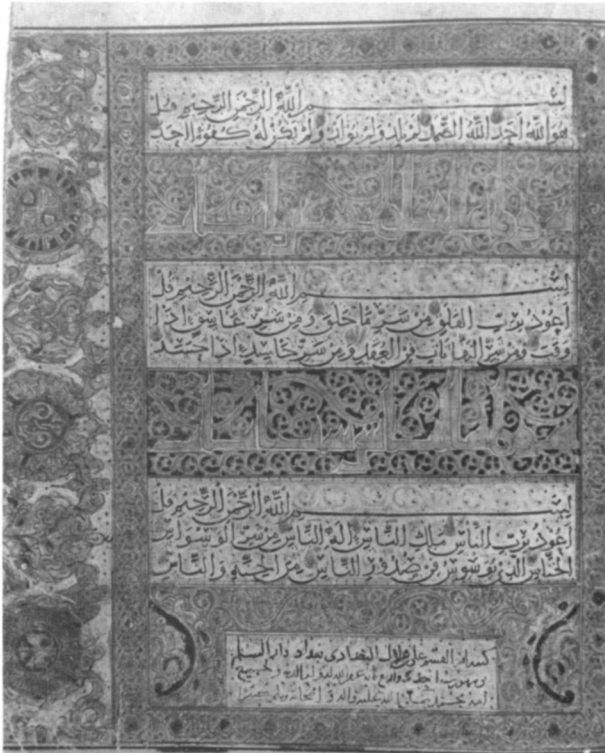 بسم الله الرحمن الرحيم قل
هو الله أحد الله الصمد لم يلد ولم يولد ولم يكن له كفوا احد
بسم الله الرحمن الرحيم قل
اعوذ برب الفلق من شر ما خلق ومن شر غاسق اذا
وقب ومن شر النفاثات في العقد ومن شر حاسد اذا حسد
بسم الله الرحمن الرحيم قل
اعوذ برب الناس ملك الناس اله الناس من شر الوسواس
الخناس الذي يوسوس في صدور الناس من الجنة والناس
علي بن هلال البغدادي ببغداد دار السلم